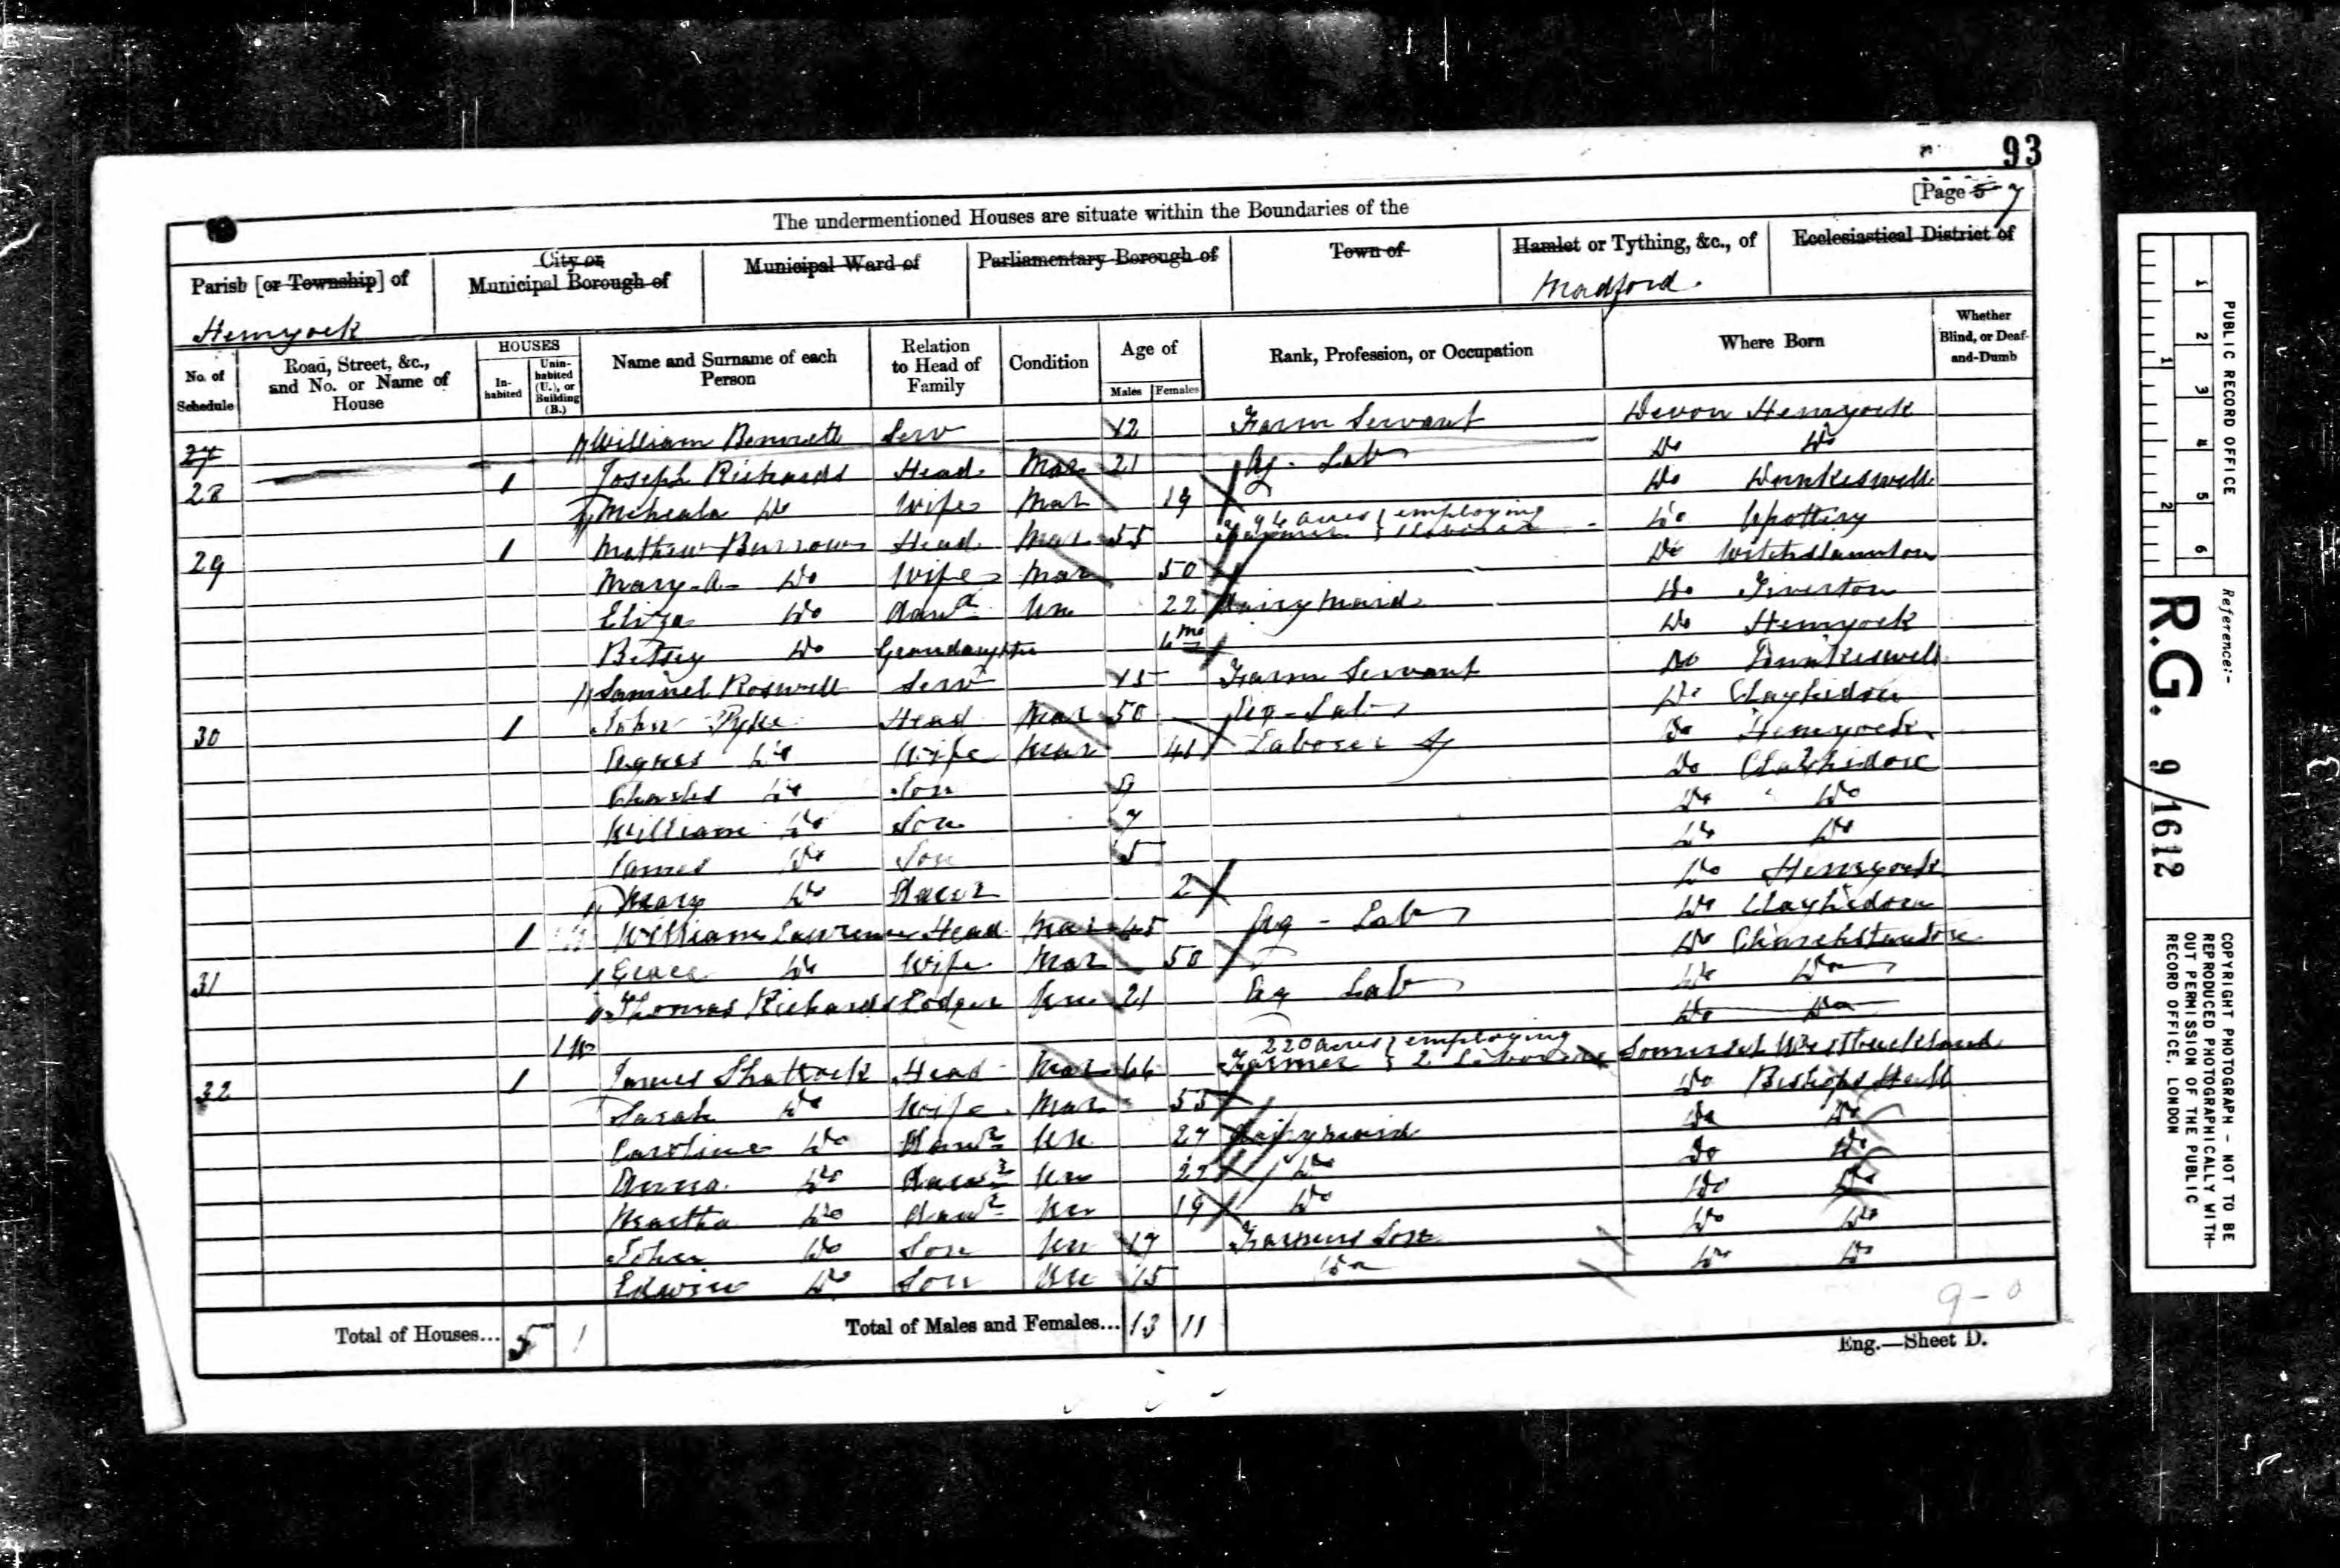 93
[Page 5 7
The undermentioned Houses are situate within the Boundaries of the
Parish [or Township] of
City or
Municipal Borough of
Municipal Ward of
Parliamentary Borough of
Town of
Hamlet or Tything, &c., of
Ecclesiastical District of
Hemyock
Madford.
No. of Schedule
Road, Street, &c., and No. or Name of House
HOUSES
In-habited
Unin-habited (U.), or Building (B.)
Name and Surname of each Person
Relation to Head of Family
Condition
Age of
Males
Females
Rank, Profession, or Occupation
Where Born
Whether Blind, or Deaf-and-Dumb
27 William Bennett Serv 12 Farm Servant Devon Hemyock
28 1 Joseph Richards Head Mar 21 Ag. Lab Do Do
Do Wife Mar 19 Do Dunkeswell
29 1 Mathew Burrows Head Mar 55 Farmer acres employing Do Upottery
Mary A Do Wife Mar 50 Do
Eliza Do Daur Un 22 Dairymaid Do Tiverton
Betsey Do Grandaughter mo Do Hemyock
Samuel Roswell Serv 15 Farm Servant Do Dunkeswell
30 1 John Pyke Head Mar 50 Ag - Lab Do Clayhidon
Agnes Do Wife Mar 41 Laborer Ag Do Hemyock
Charles Do Son 9 Do Clayhidon
William Do Son 7 Do Do
James Do Son 5 Do Do
Mary Do Daur 2 Do Hemyock
31 1 William Lawrence Head Mar 45 Ag - Lab Do Clayhidon
Grace Do Wife Mar 50 Do Churchstanton
Thomas Richards Lodger Un 21 Ag Lab Do Do
1 Do Do
32 1 James Shattock Head Mar 66 Farmer 220 acres employing 2 Laborers Somerset Westbuckland
Sarah Do Wife Mar 55 Do Bishops Hull
Caroline Do Daur Un 27 Dairymaid Do Do
Anna Do Daur Un 22 Do Do Do
Martha Do Daur Un 19 Do Do Do
John Do Son Un 17 Farmers Son Do Do
Edwin Do Son Un 15 Do Do Do
Total of Houses... 5 1
Total of Males and Females... 13 11
9 - 0
Eng.—Sheet D.
PUBLIC RECORD OFFICE
1 2 3 4 5 6
1 2
Reference:-
R.G. 9/1612
COPYRIGHT PHOTOGRAPH - NOT TO BE
REPRODUCED PHOTOGRAPHICALLY WITH-
OUT PERMISSION OF THE PUBLIC
RECORD OFFICE, LONDON